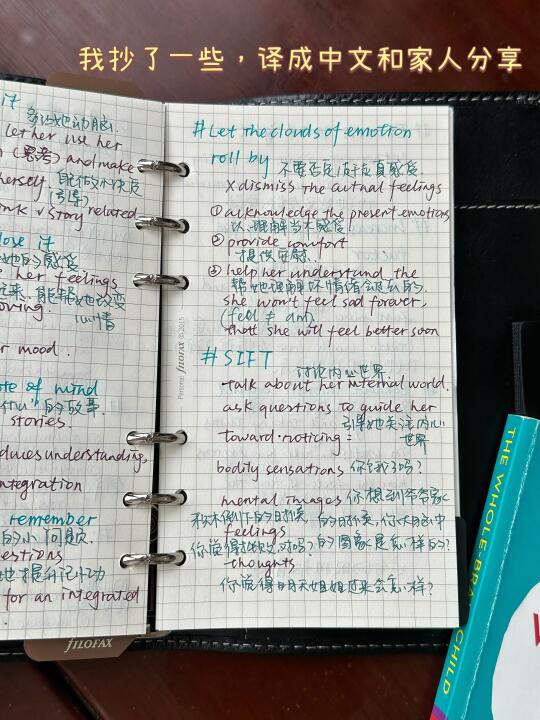 我抄了一些，译成中文和家人分享
it
多让她动脑.
let her use her
(思考) and make
herself. 自己做决定
(引导)
story related
lose it
她的感受
her feelings
起来, 能帮她改变
moving. 心情
r mood.
te of mind
的故事.
stories.
duces understanding,
ntegration
remember
的小问题
estions
她提升记忆力
for an integrated
#Let the clouds of emotion
roll by 不要否定孩子真感受
X dismiss the actual feelings
① acknowledge the present emotions
认、理解当下感受
② provide comfort
提供安慰.
③ help her understand the
帮她理解坏情绪会过去的.
she won't feel sad forever,
(feel ≠ am)
that she will feel better soon
#SIFT 讨论内心世界.
talk about her internal world.
ask questions to guide her
引导她关注内心
toward noticing = 世界
bodily sensations 你饿了吗?
mental images 你想到爷爷家
积木倒下的时候 的时候, 你大脑中
feelings
你觉得挫败对吗? 的图象是怎样的?
thoughts
你觉得明天姐姐过来会怎样?
Personal FILOFAX © 2015
FILOFAX
THE WHOLE-BRA CHILD